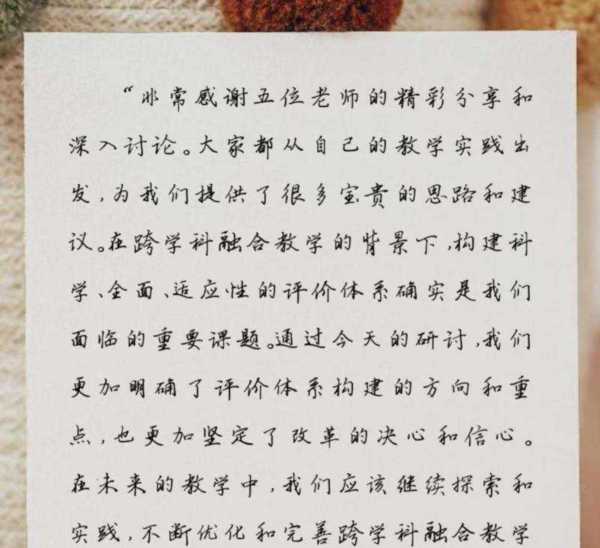 “非常感谢五位老师的精彩分享和
深入讨论。大家都从自己的教学实践出
发,为我们提供了很多宝贵的思路和建
议。在跨学科融合教学的背景下,构建科
学、全面、适应性的评价体系确实是我们
面临的重要课题。通过今天的研讨,我们
更加明确了评价体系构建的方向和重
点,也更加坚定了改革的决心和信心。
在未来的教学中,我们应该继续探索和
实践,不断优化和完善跨学科融合教学